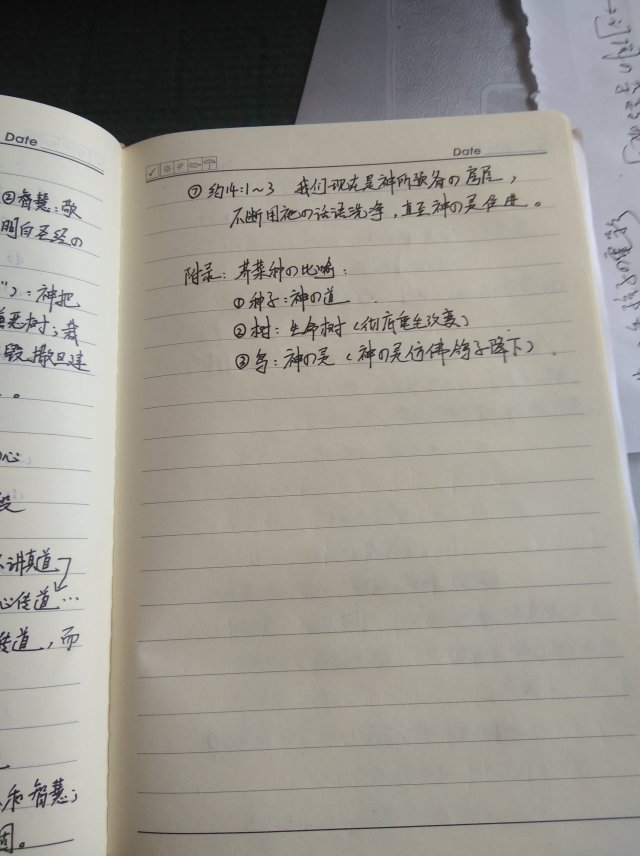 Date
②智慧：敬
明白圣经の
"）：神把
恶树；栽
毁撒旦建
。
心
段
讲真道
心传道…
传道，而
和智慧；
固。
Date
⑦ 约14:1~3 我们现在是神所预备の房屋，
不断用祂の话语洗净，直至神の灵住进。
附录：芥菜种の比喻：
①种子：神の道
②树：生命树（彻底重生改变）
③鸟：神の灵（神の灵仿佛鸽子降下）.